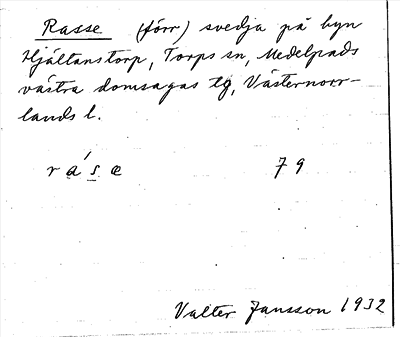 Rasse (förr) svedja på byn
Hjältanstorp, Torps sn, Medelpads
västra domsagas tg, Västernorr-
lands l.
ráse 79
Valter Jansson 1932